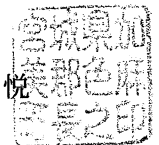 宮城県加
美郡色麻
町長之印
悦